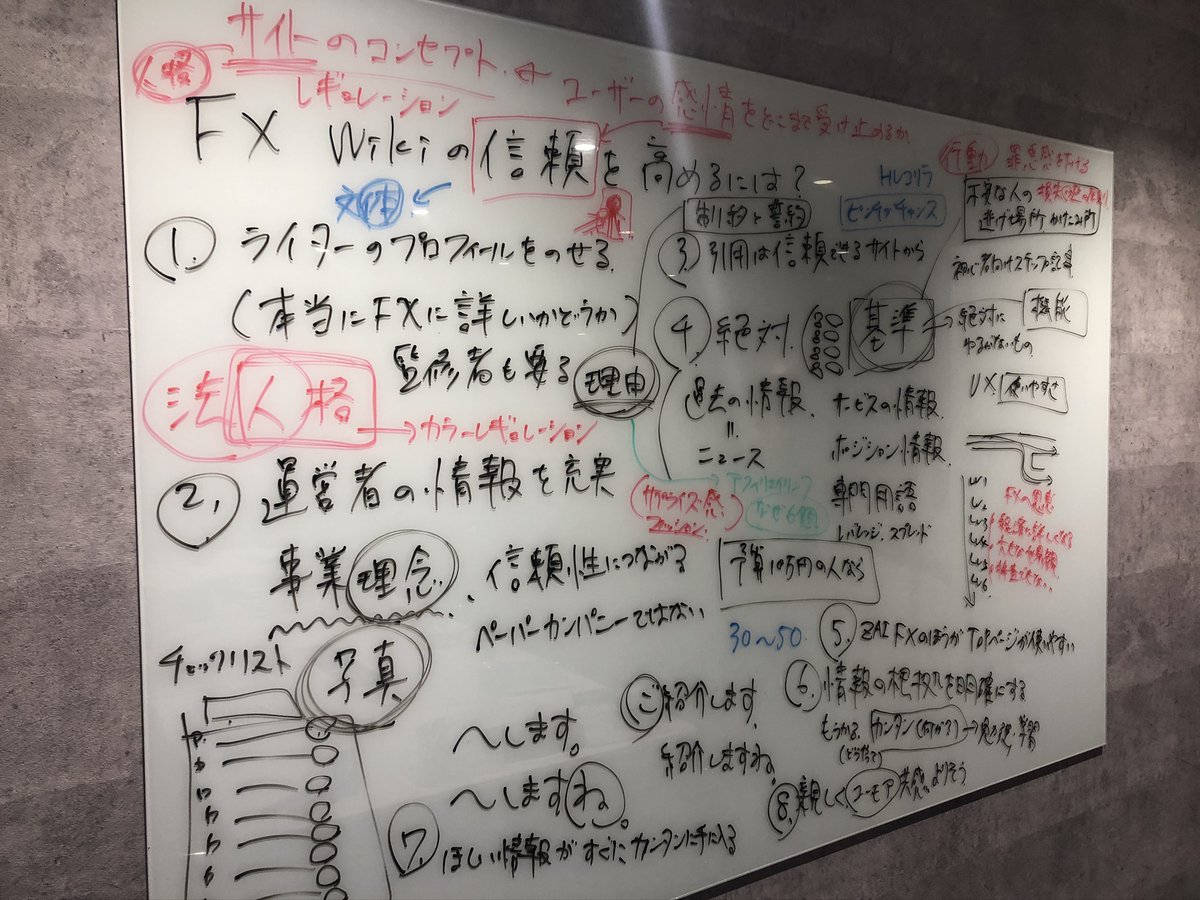 人格 サイトのコンセプト ← ユーザーの感情をどこまで受け止めるか
レギュレーション
FX Wikiの信頼を高めるには?
文体
1. ライターのプロフィールをのせる
(本当にFXに詳しいかどうか)
監修者も要る
理由
法人格
→カラーレギュレーション
2. 運営者の情報を充実
事業理念
信頼性につながる
ペーパーカンパニーではない
チェックリスト
写真
〜します。
〜しますね。
ご紹介します
紹介しますね
7. ほしい情報がすぐにカンタンに手に入る
制約と誓約
トルコリラ
ピンチとチャンス
3. 引用は信頼できるサイトから
4. 絶対
基準
→絶対に
ゆるがないもの
過去の情報
〃
ニュース
サービスの情報
ポジション情報
専門用語
レバレッジ、スプレッド
サプライズ感
なぜ6個
予算10万円の人なら
30〜50
行動
罪悪感を下げる
不安な人の
逃げ場所 かけこみ所
初心者向けステップ記事
機能
UX 使いやすさ
FXの恩恵
5. ZAI FXのほうがTOPページが使いやすい
6. 情報の根拠を明確にする
もうかる、カンタン(何が?)→
(どうやって)
8. 親しく ユーモア 共感、よりそう